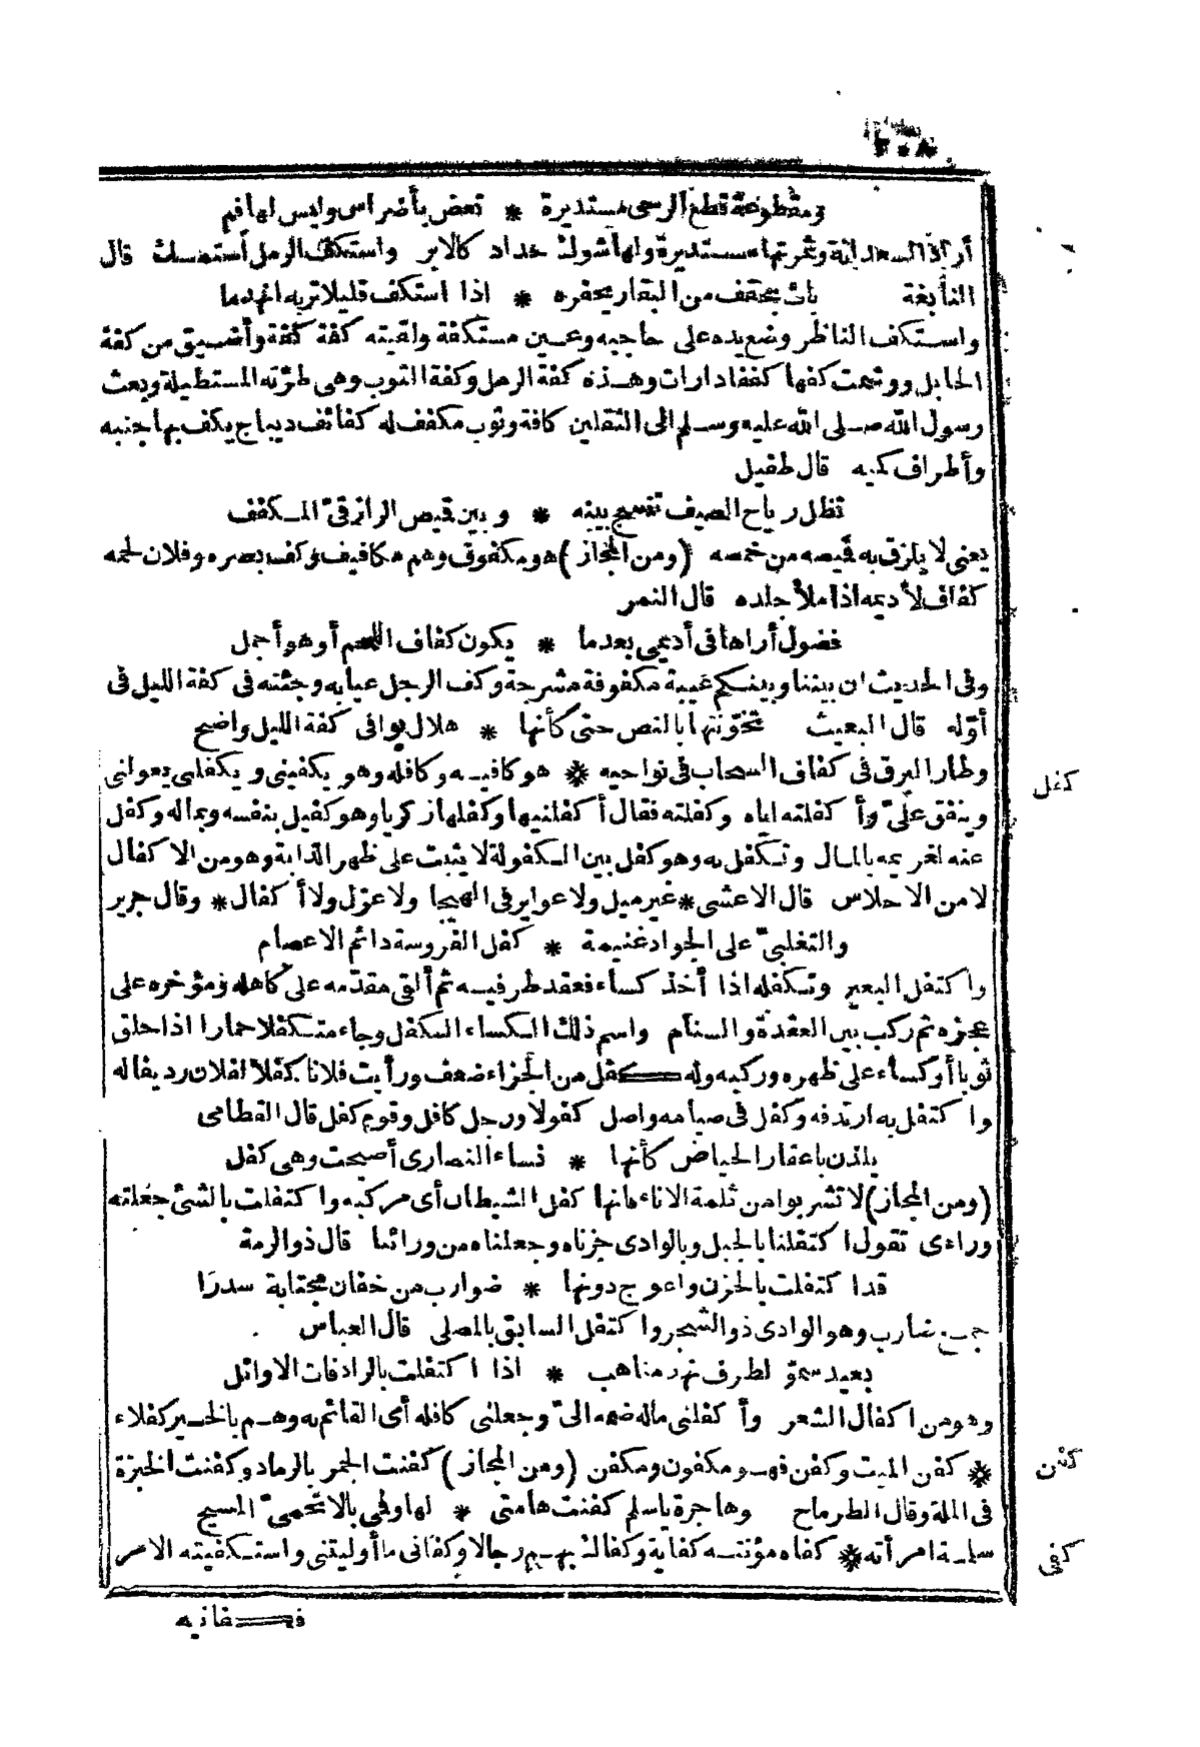 ٢٠٨
ومقطوعة قطع الرحى مستديرة * تعض بأضراس وليس لها فم
أراد السعدانة وثمرتها مستديرة ولها شوك حداد كالابر واستكف الرمل استمسك قال
النابغة باتت بحقف من البقار يحفره * اذا استكف قليلا تربه انهدما
واستكف الناظر وضع يده على حاجبه وعين مستكفة ولقيته كفة كفة وأضيق من كفة
الحابل ووشمت كفها كففا دارات وهذه كفة الرمل وكفة الثوب وهى طرته المستطيلة وبعث
رسول الله صلى الله عليه وسلم الى الثقلين كافة وثوب مكفف له كفائف ديباج يكف بها جنبه
وأطراف كميه قال طفيل
تظل رياح الصيف تنسج بينه * وبين قميص الرازقىّ المكفف
يعنى لا يلزق به قميصه من خمصه (ومن المجاز) هو مكفوف وهم مكافيف وكف بصره وفلان لحمه
كفاف لأديمه اذا ملأ جلده قال النمر
فضول أراها فى أديمى بعدما * يكون كفاف اللحم أو هو أجمل
وفى الحديث ان بيننا وبينكم عيبة مكفوفة مشرجة وكف الرجل عيابه وجئته فى كفة الليل فى
أوّله قال البعيث تخوّنتها بالنص حتى كأنها * هلال يوافى كفة الليل واضح
وطار البرق فى كفاف السحاب فى نواحيه * هو كافيه وكافله وهو يكفينى ويكفلنى يعولنى
كفل
وينفق علىّ وأكفلته اياه وكفلته فقال أكفلنيها وكفلها زكريا وهو كفيل بنفسه وبماله وكفل
عنه لغريمه بالمال وتكفل به وهو كفل بين الكفولة لا يثبت على ظهر الدابة وهو من الاكفال
لا من الاحلاس قال الاعشى * غير ميل ولا عواوير فى الهيجا ولا عزل ولا أكفال * وقال جرير
والتغلبىّ على الجواد غنيمة * كفل الفروسة دائم الاعصام
واكتفل البعير وتكفله اذا أخذ كساء فعقد طرفيه ثم ألقى مقدّمه على كاهله ومؤخره على
عجزه ثم ركب بين العقدة والسنام واسم ذلك الكساء الكفل وجاء متكفلا حمارا اذا حلق
ثوبا أو كساء على ظهره وركبه وله كفل من الجزاء ضعف ورأيت فلانا كفلا لفلان رديفا له
واكتفل به ارتدفه وكفل فى صيامه واصل كفولا ورجل كافل وقوم كفل قال القطامى
يلذن باعقار الحياض كأنها * نساء النصارى أصبحت وهى كفل
(ومن المجاز) لا تشربوا من ثلمة الاناء فانها كفل الشيطان أى مركبه واكتفلت بالشئ جعلته
وراءى تقول اكتفلنا بالجبل وبالوادى جزناه وجعلناه من ورائنا قال ذو الرمة
قد اكتفلت بالحزن واعوج دونها * ضوارب من خفان مجتابة سدرا
جمع ضارب وهو الوادى ذو الشجر واكتفل السابق بالمصلى قال العباس
بعيد سموّ الطرف نهد مناهب * اذا اكتفلت بالرادفات الاوائل
وهو من اكفال الشعر وأكفلنى ماله ضمه الىّ وجعلنى كافله أى القائم به وهم بالخير كفلاء
* كفن الميت وكفن فهو مكفون ومكفن (ومن المجاز) كفنت الجمر بالرماد وكفنت الخبزة
كفن
فى الملة وقال الطرماح وهاجرة ياسلم كفنت هامتى * لها ولحى بالاتحمىّ المسيح
سلمة امرأته * كفاه مؤنته كفاية وكفاك بهم رجالا وكفانى ما أوليتنى واستكفيته الامر
كفى
فكفانيه